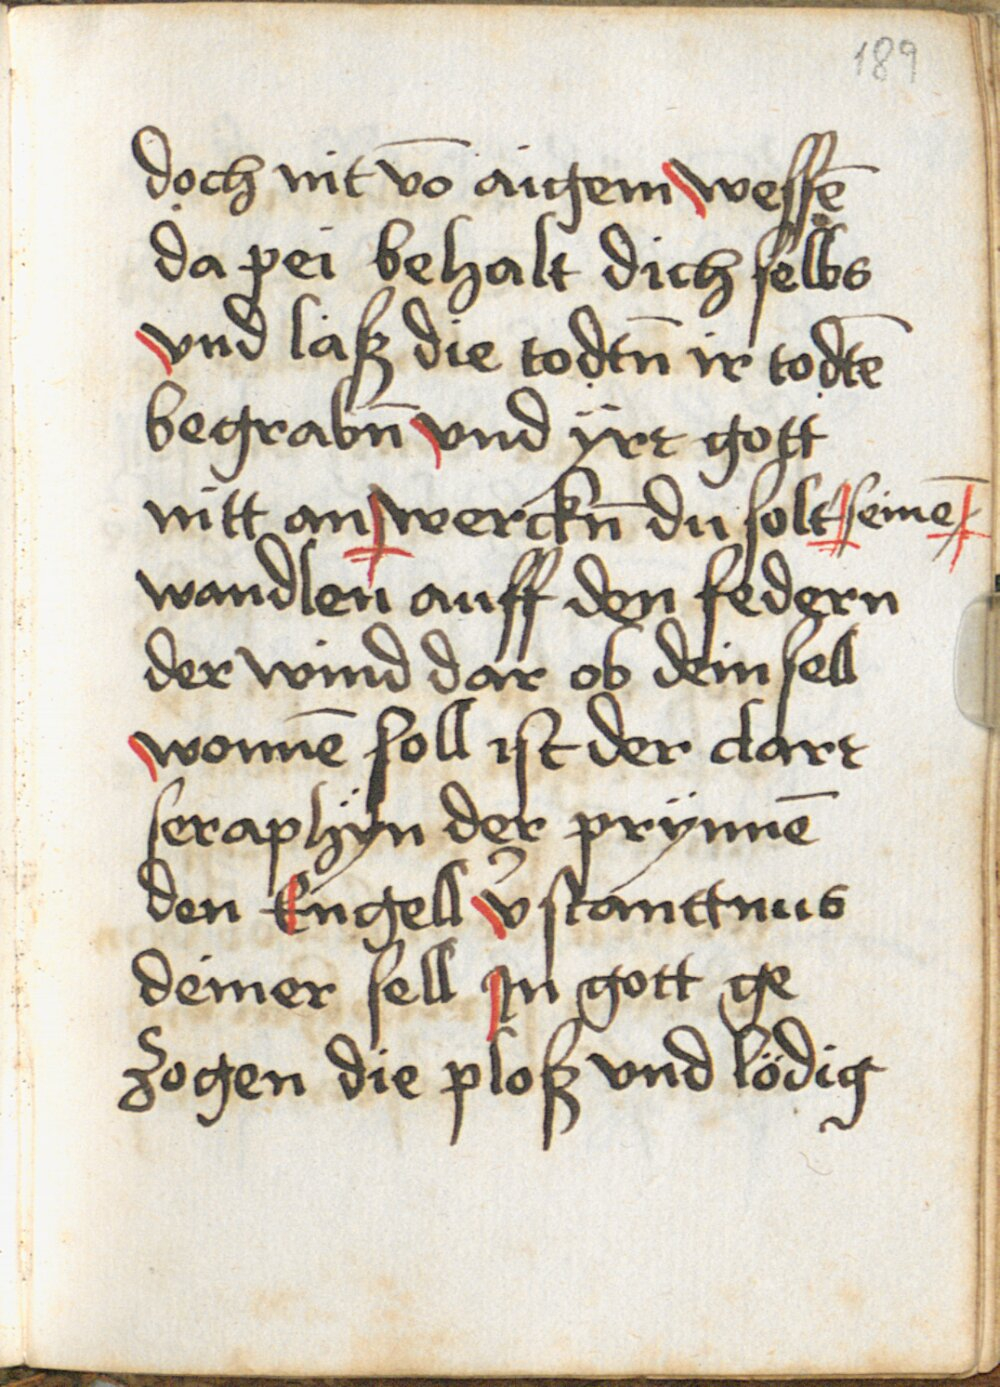 189
doch nit vō aigem weſſē
da pei behalt dich ſelbs
vnd laſz die todtn̄ ir todtē
begrabn̄ vnd ÿrt gott
nitt an werckn̄ du ſolt ſeinē
wandlen auff den federn
der wind dar ob dein ſell
wonnē ſoll iſt der clart
ſeraphÿn der prÿnnē
den Engell v̉ſtanttnus
deiner ſell In gott ge
zogen die ploſz vnd lödig